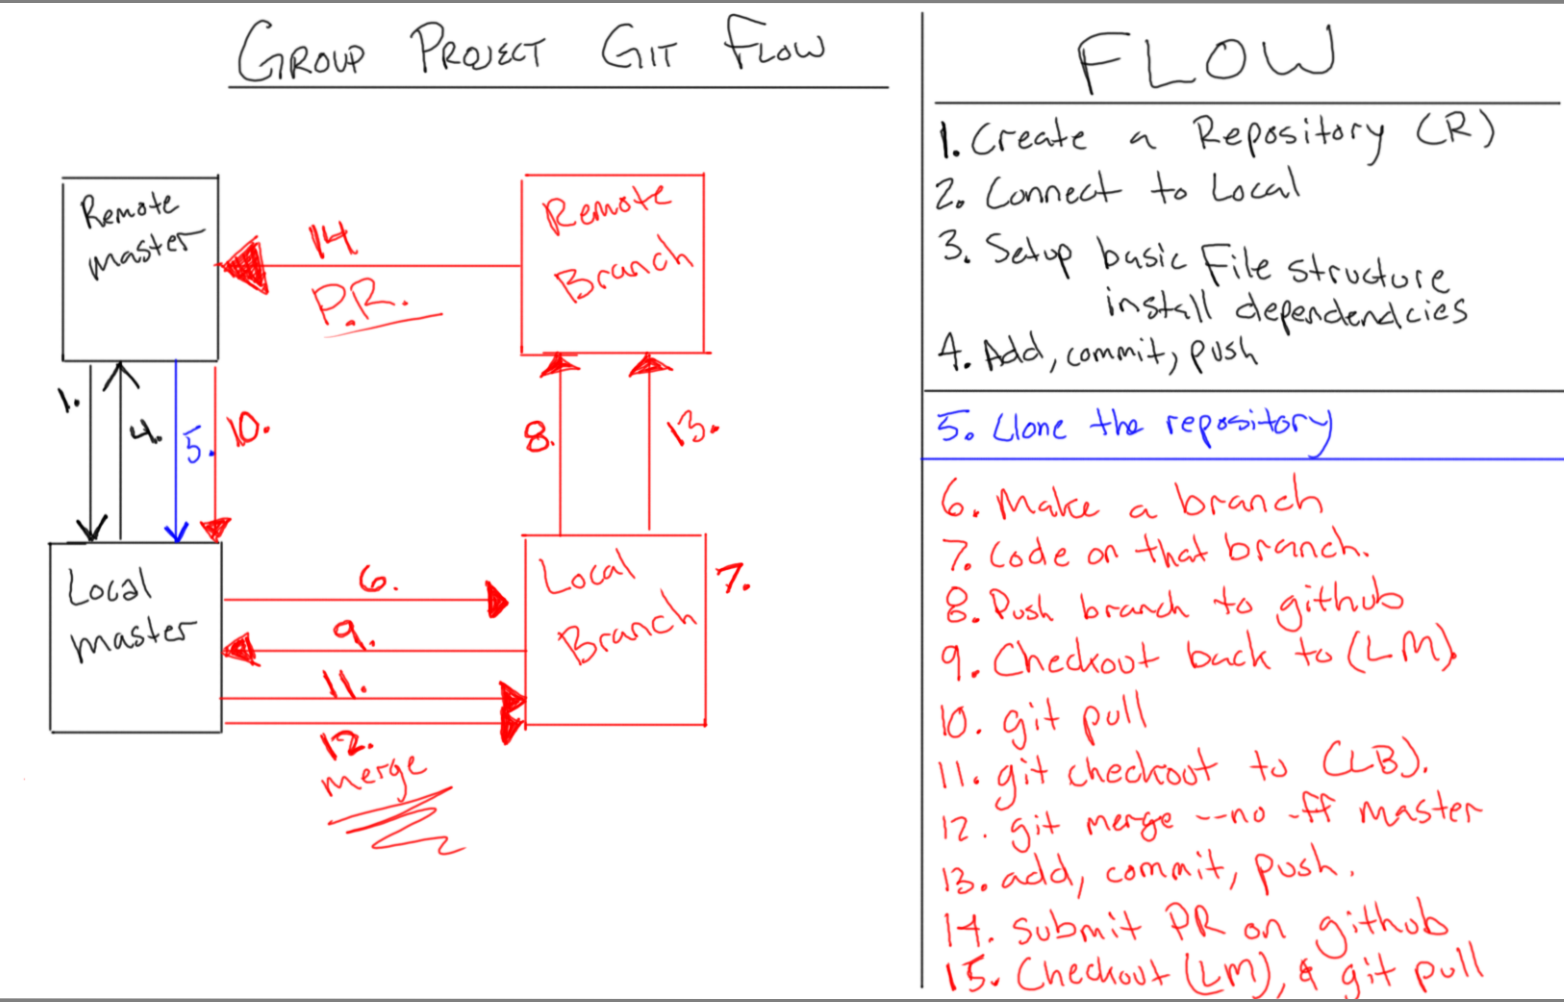 GROUP PROJECT GIT FLOW
Remote
master
14
P.R.
Remote
Branch
1.
4.
5.
10.
8.
13.
Local
master
6.
9.
11.
12.
merge
Local
Branch
7.
FLOW
1. Create a Repository (R)
2. Connect to Local
3. Setup basic File structure
install dependendcies
4. Add, commit, push
5. Clone the repository
6. Make a branch
7. Code on that branch.
8. Push branch to github
9. Checkout back to (LM).
10. git pull
11. git checkout to (LB).
12. git merge --no -ff master
13. add, commit, push.
14. submit PR on github
15. Checkout (LM), & git pull